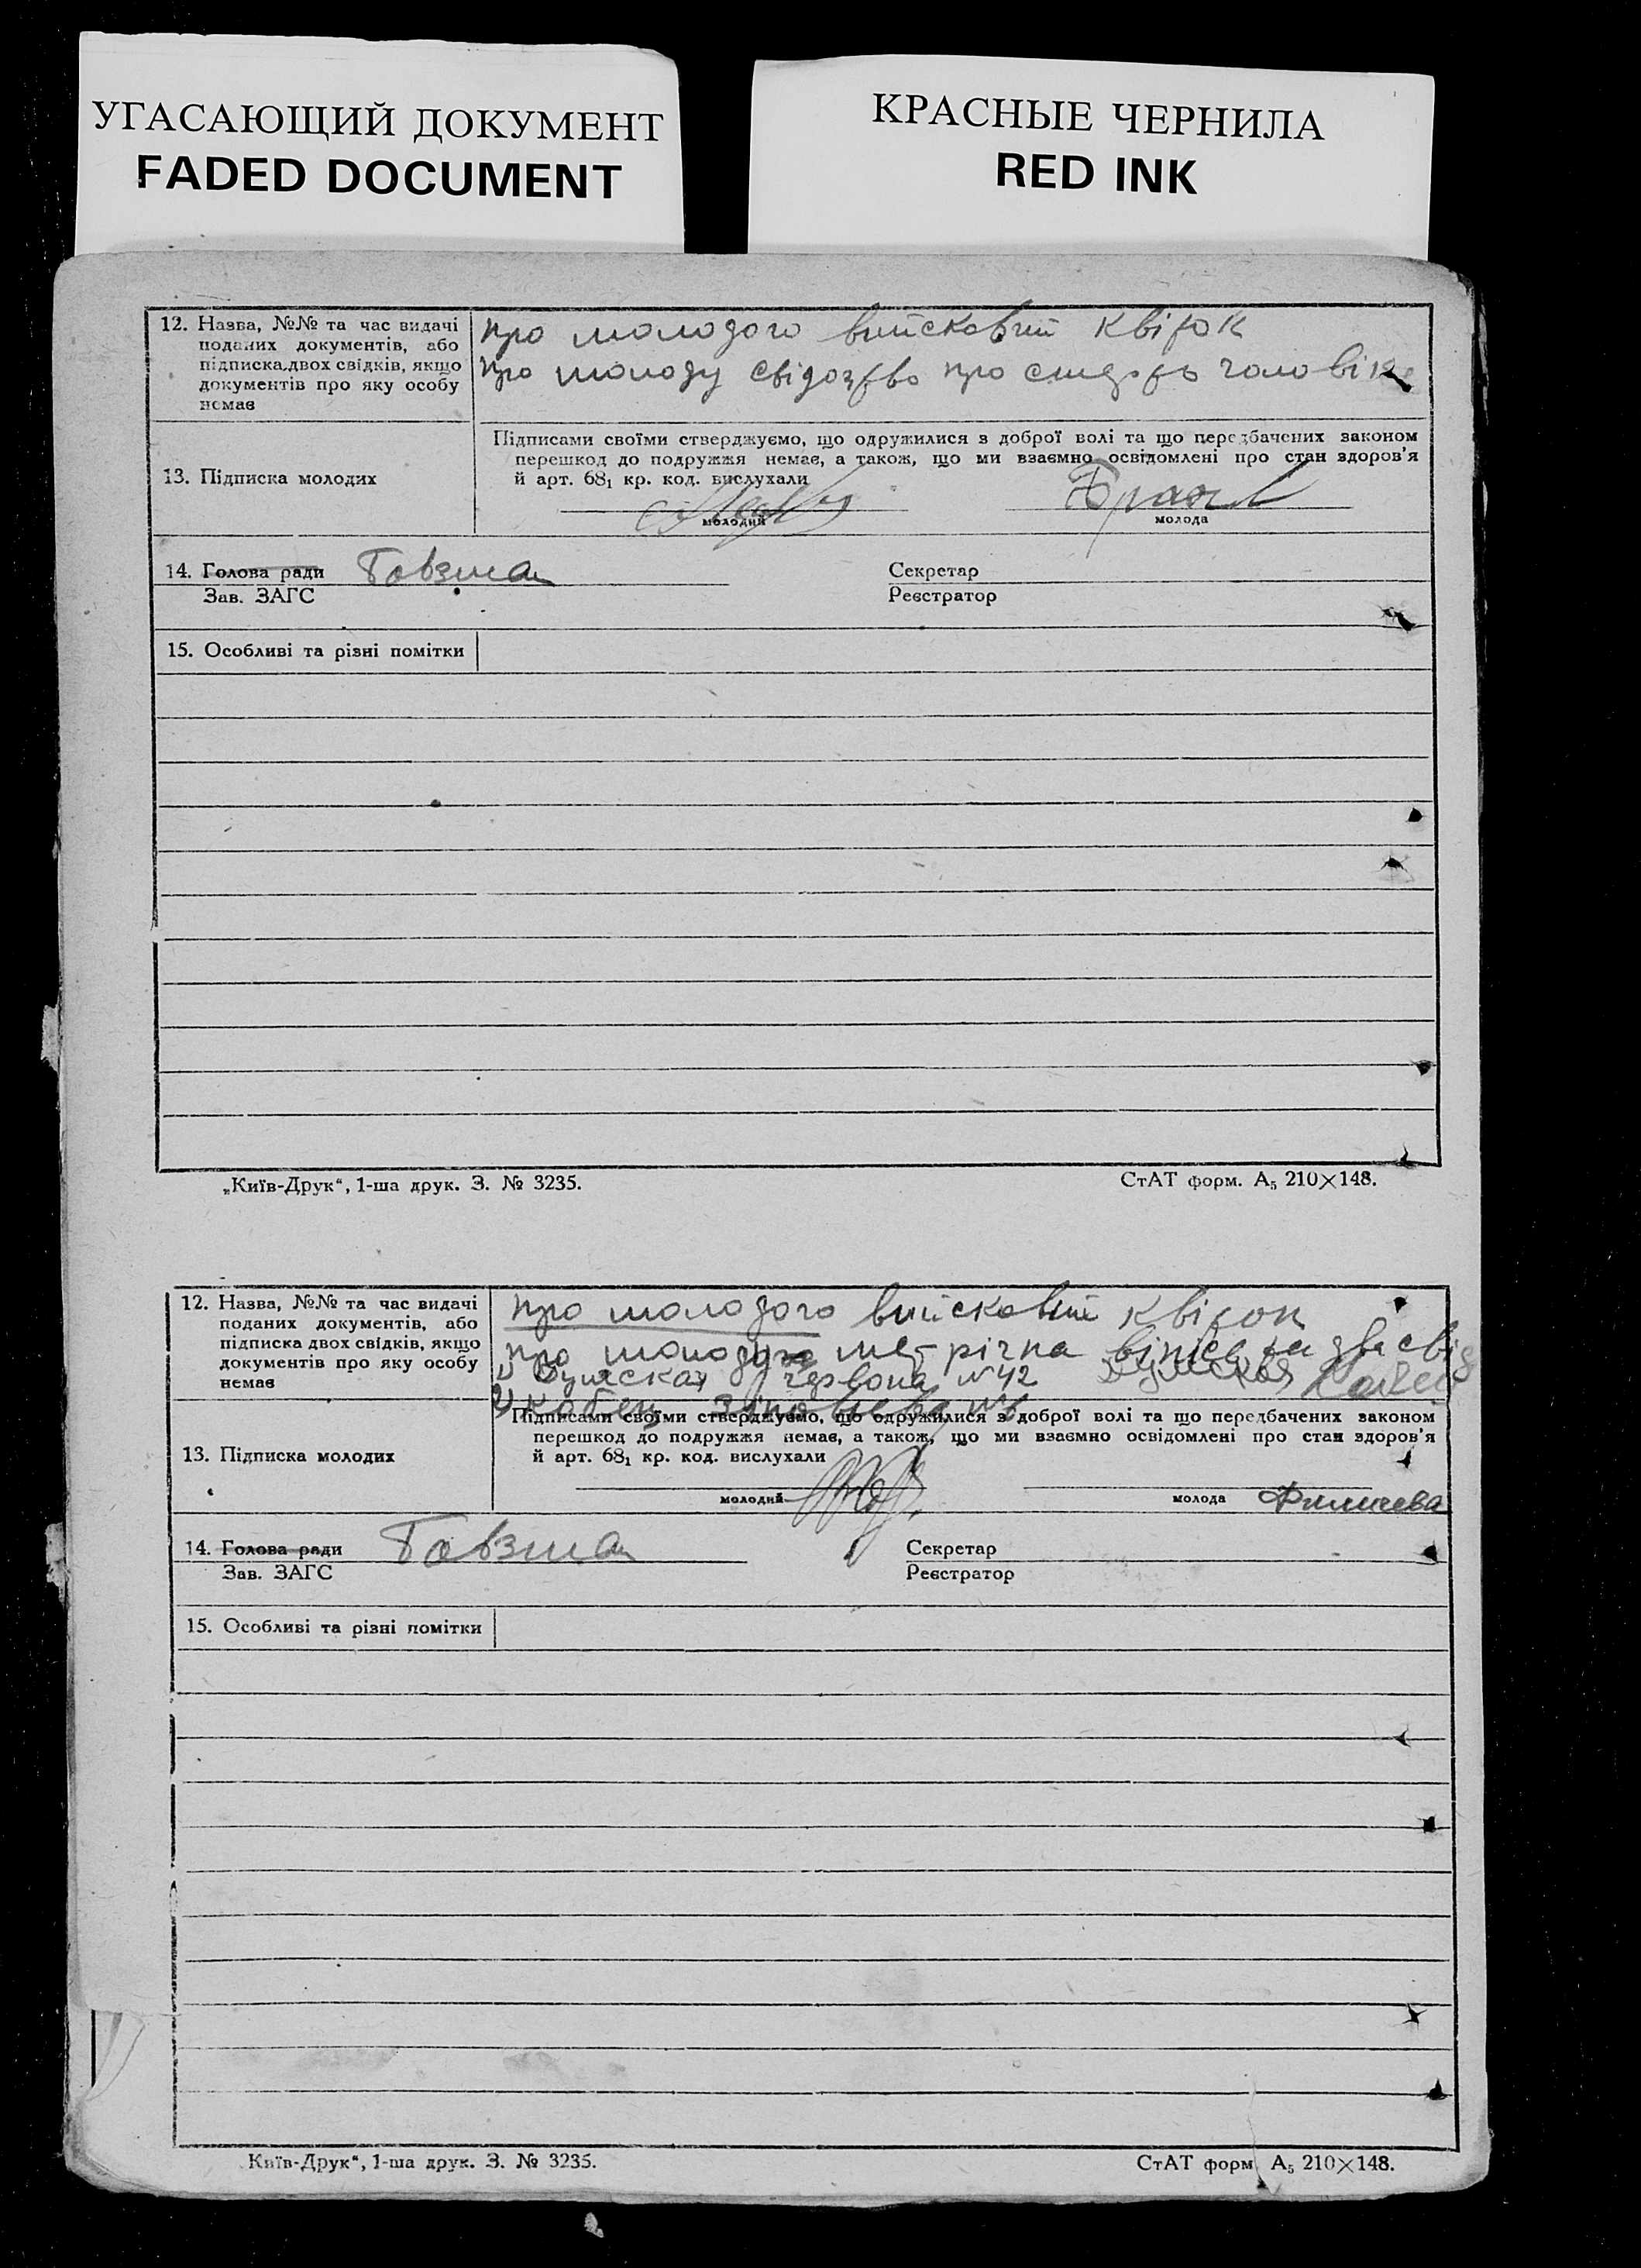 УГАСАЮЩИЙ ДОКУМЕНТ
FADED DOCUMENT
КРАСНЫЕ ЧЕРНИЛА
RED INK
12. Назва, №№ та час видачі
поданих документів, або
підписка двох свідків, якщо
документів про яку особу
немає
про молодого війсковий квіток
про молоду свідоцтво про смерть чоловіка
Підписами своїми стверджуємо, що одружилися з доброї волі та що передбачених законом
перешкод до подружжя немає, а також, що ми взаємно освідомлені про стан здоров'я
й арт. 68₁ кр. код. вислухали
13. Підписка молодих
молодий
молода
14. Голова ради
Зав. ЗАГС
Говзман
Секретар
Реєстратор
15. Особливі та різні помітки
„Київ-Друк“, 1-ша друк. З. № 3235.
СтАТ форм. А₅ 210×148.
12. Назва, №№ та час видачі
поданих документів, або
підписка двох свідків, якщо
документів про яку особу
немає
про молодого війсковий квіток
про молоду метрічна два свід
1) червона №42
2)
Підписами своїми стверджуємо, що одружилися з доброї волі та що передбачених законом
перешкод до подружжя немає, а також, що ми взаємно освідомлені про стан здоров'я
й арт. 68₁ кр. код. вислухали
13. Підписка молодих
молодий
молода
14. Голова ради
Зав. ЗАГС
Говзман
Секретар
Реєстратор
15. Особливі та різні помітки
Київ-Друк“, 1-ша друк. З. № 3235.
СтАТ форм А₅ 210×148.